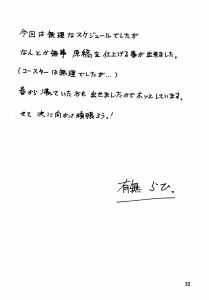 今回は無理なスケジュールでしたが
なんとか無事 原稿を仕上げる事が出来ました。
(コースターは無理でしたが…)
春から溜ていた方も 出きましたのでホッとしています。
さて 次に向かって頑張ろう!
有無 らひ.
32